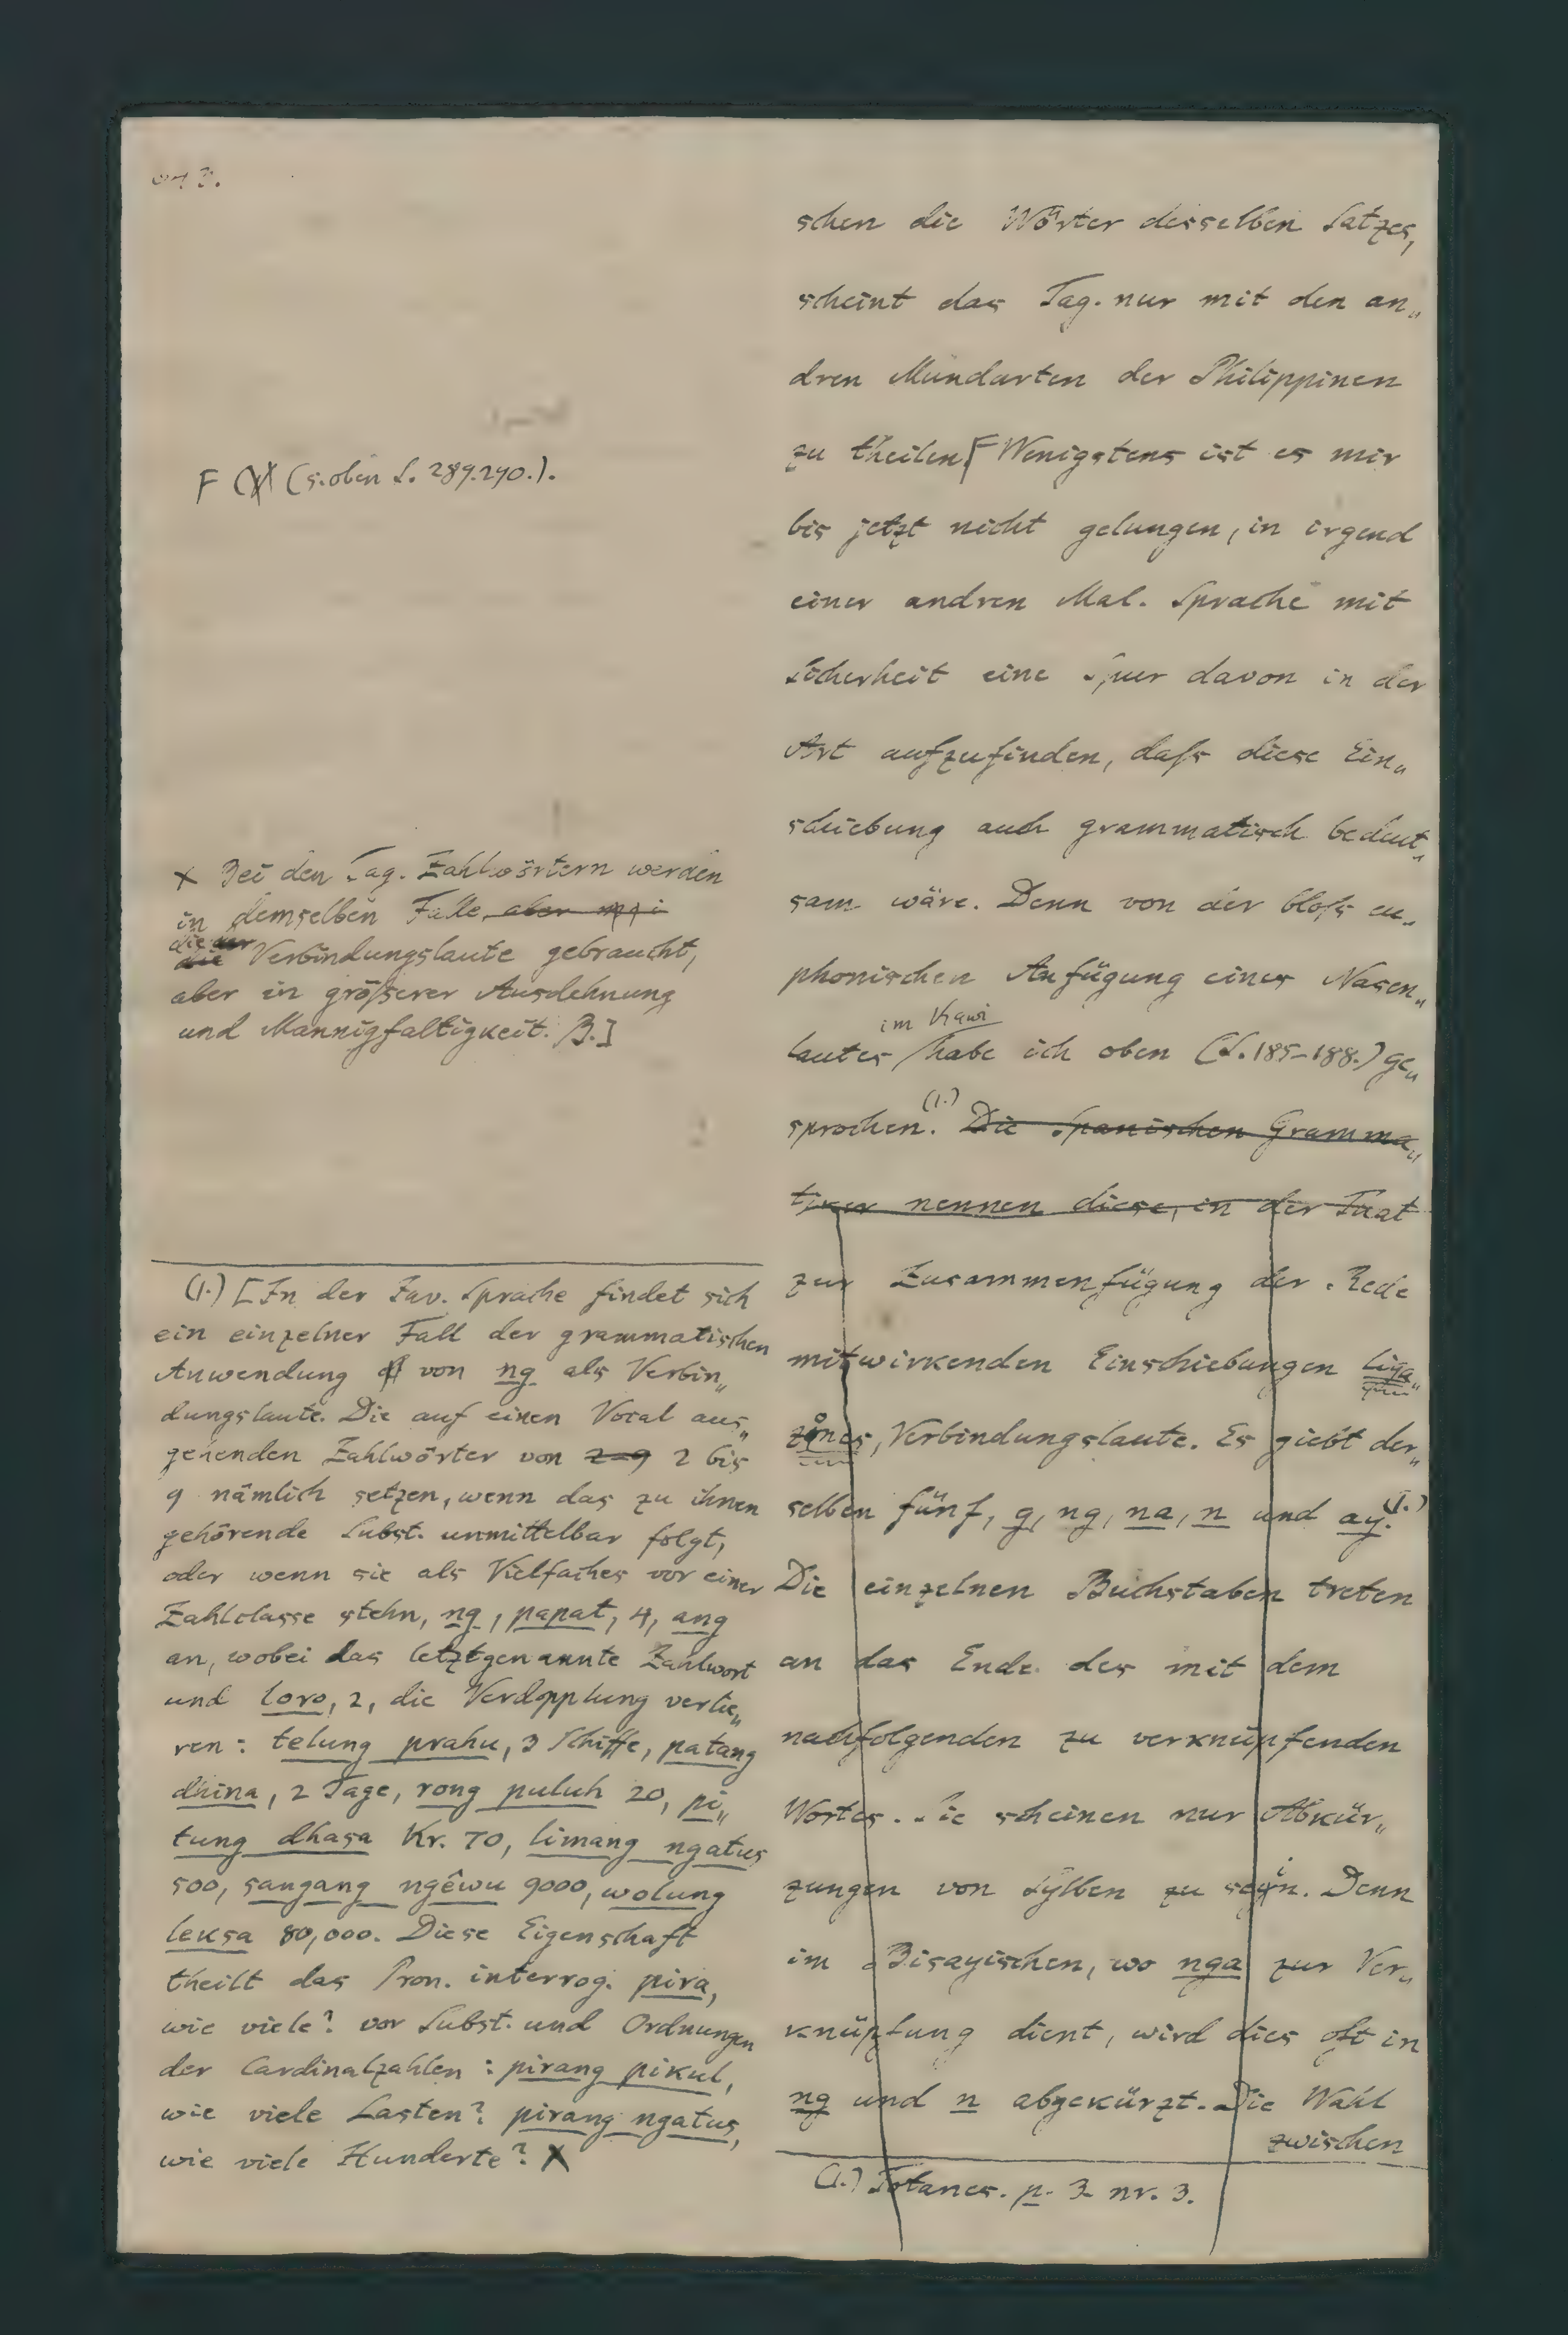 schen die Wörter desselben Satzes,
scheint das Tag. nur mit den an„
dren Mundarten der Philippinen
zu theilen F Wenigstens ist es mir
bis jetzt nicht gelungen, in irgend
einer andren Mal. Sprache mit
Sicherheit eine Spur davon in der
Art aufzufinden, daſs diese Ein„
schiebung auch grammatisch bedeut„
sam wäre. Denn von der bloſs eu„
phonischen Anfügung eines Nasen„
im Kawi
lautes habe ich oben (S. 185-188.) ge„
sprochen. (1.) Die Spanischen Gramma„
tiker nennen diese, in der That
zur Zusammenfügung der Rede
mitwirkenden Einschiebungen liga„
zones, Verbindungslaute. Es giebt der„
selben fünf, g, ng, na, n und ay. (1.)
Die einzelnen Buchstaben treten
an das Ende des mit dem
nachfolgenden zu verknüpfenden
Wortes. Sie scheinen nur Abkür„
zungen von Sylben zu sein. Denn
im Bisayischen, wo nga zur Ver„
knüpfung dient, wird dies oft in
ng und n abgekürzt. Die Wahl
zwischen
(1.) Totanes. p. 3 nr. 3.
F (s. oben S. 289.290.).
x Bei den Tag. Zahlwörtern werden
in demselben Falle, aber
die
die Verbindungslaute gebraucht,
aber in gröſserer Ausdehnung
und Mannigfaltigkeit. B.]
(1.) [In der Jav. Sprache findet sich
ein einzelner Fall der grammatischen
Anwendung von ng als Verbin„
dungslaute. Die auf einen Vocal aus„
gehenden Zahlwörter von 2-9 2 bis
9 nämlich setzen, wenn das zu ihnen
gehörende Subst. unmittelbar folgt,
oder wenn sie als Vielfaches vor einer
Zahlclasse stehn, ng, papat, 4, ang
an, wobei das letztgenannte Zahlwort
und loro, 2, die Verdopplung verlie„
ren: telung prahu, 3 Schiffe, patang
dhina, 2 Tage, rong puluh 20, pi„
tung dhasa Kr. 70, limang ngatus
500, sangang ngêwu 9000, wolung
leksa 80,000. Diese Eigenschaft
theilt das Pron. interrog. pira,
wie viele? vor Subst. und Ordnungen
der Cardinalzahlen: pirang pikul,
wie viele Lasten? pirang ngatus,
wie viele Hunderte? X